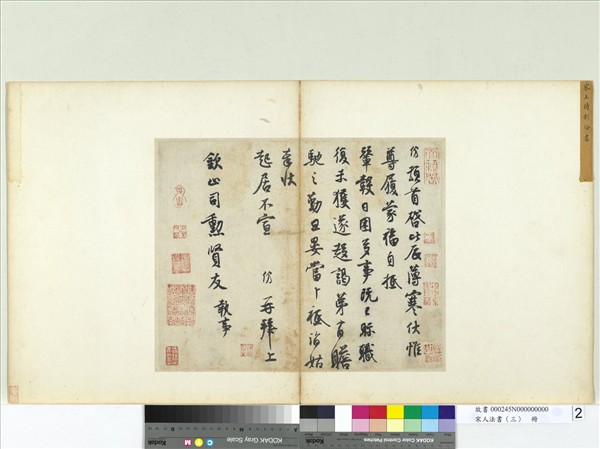 份頓首啓比辰薄寒伏惟
尊履蒙福自抵
輦轂日困多事既已眎職
復未獲遂趨謁第有瞻
馳之勤旦晏當卜祗詣姑
奉狀
起居不宣 份再拜上
欽止司勳賢友 執事
故書 000245N000000000
宋人法書（三） 冊
2
KODAK Gray Scale
KODAK Color Control Patches